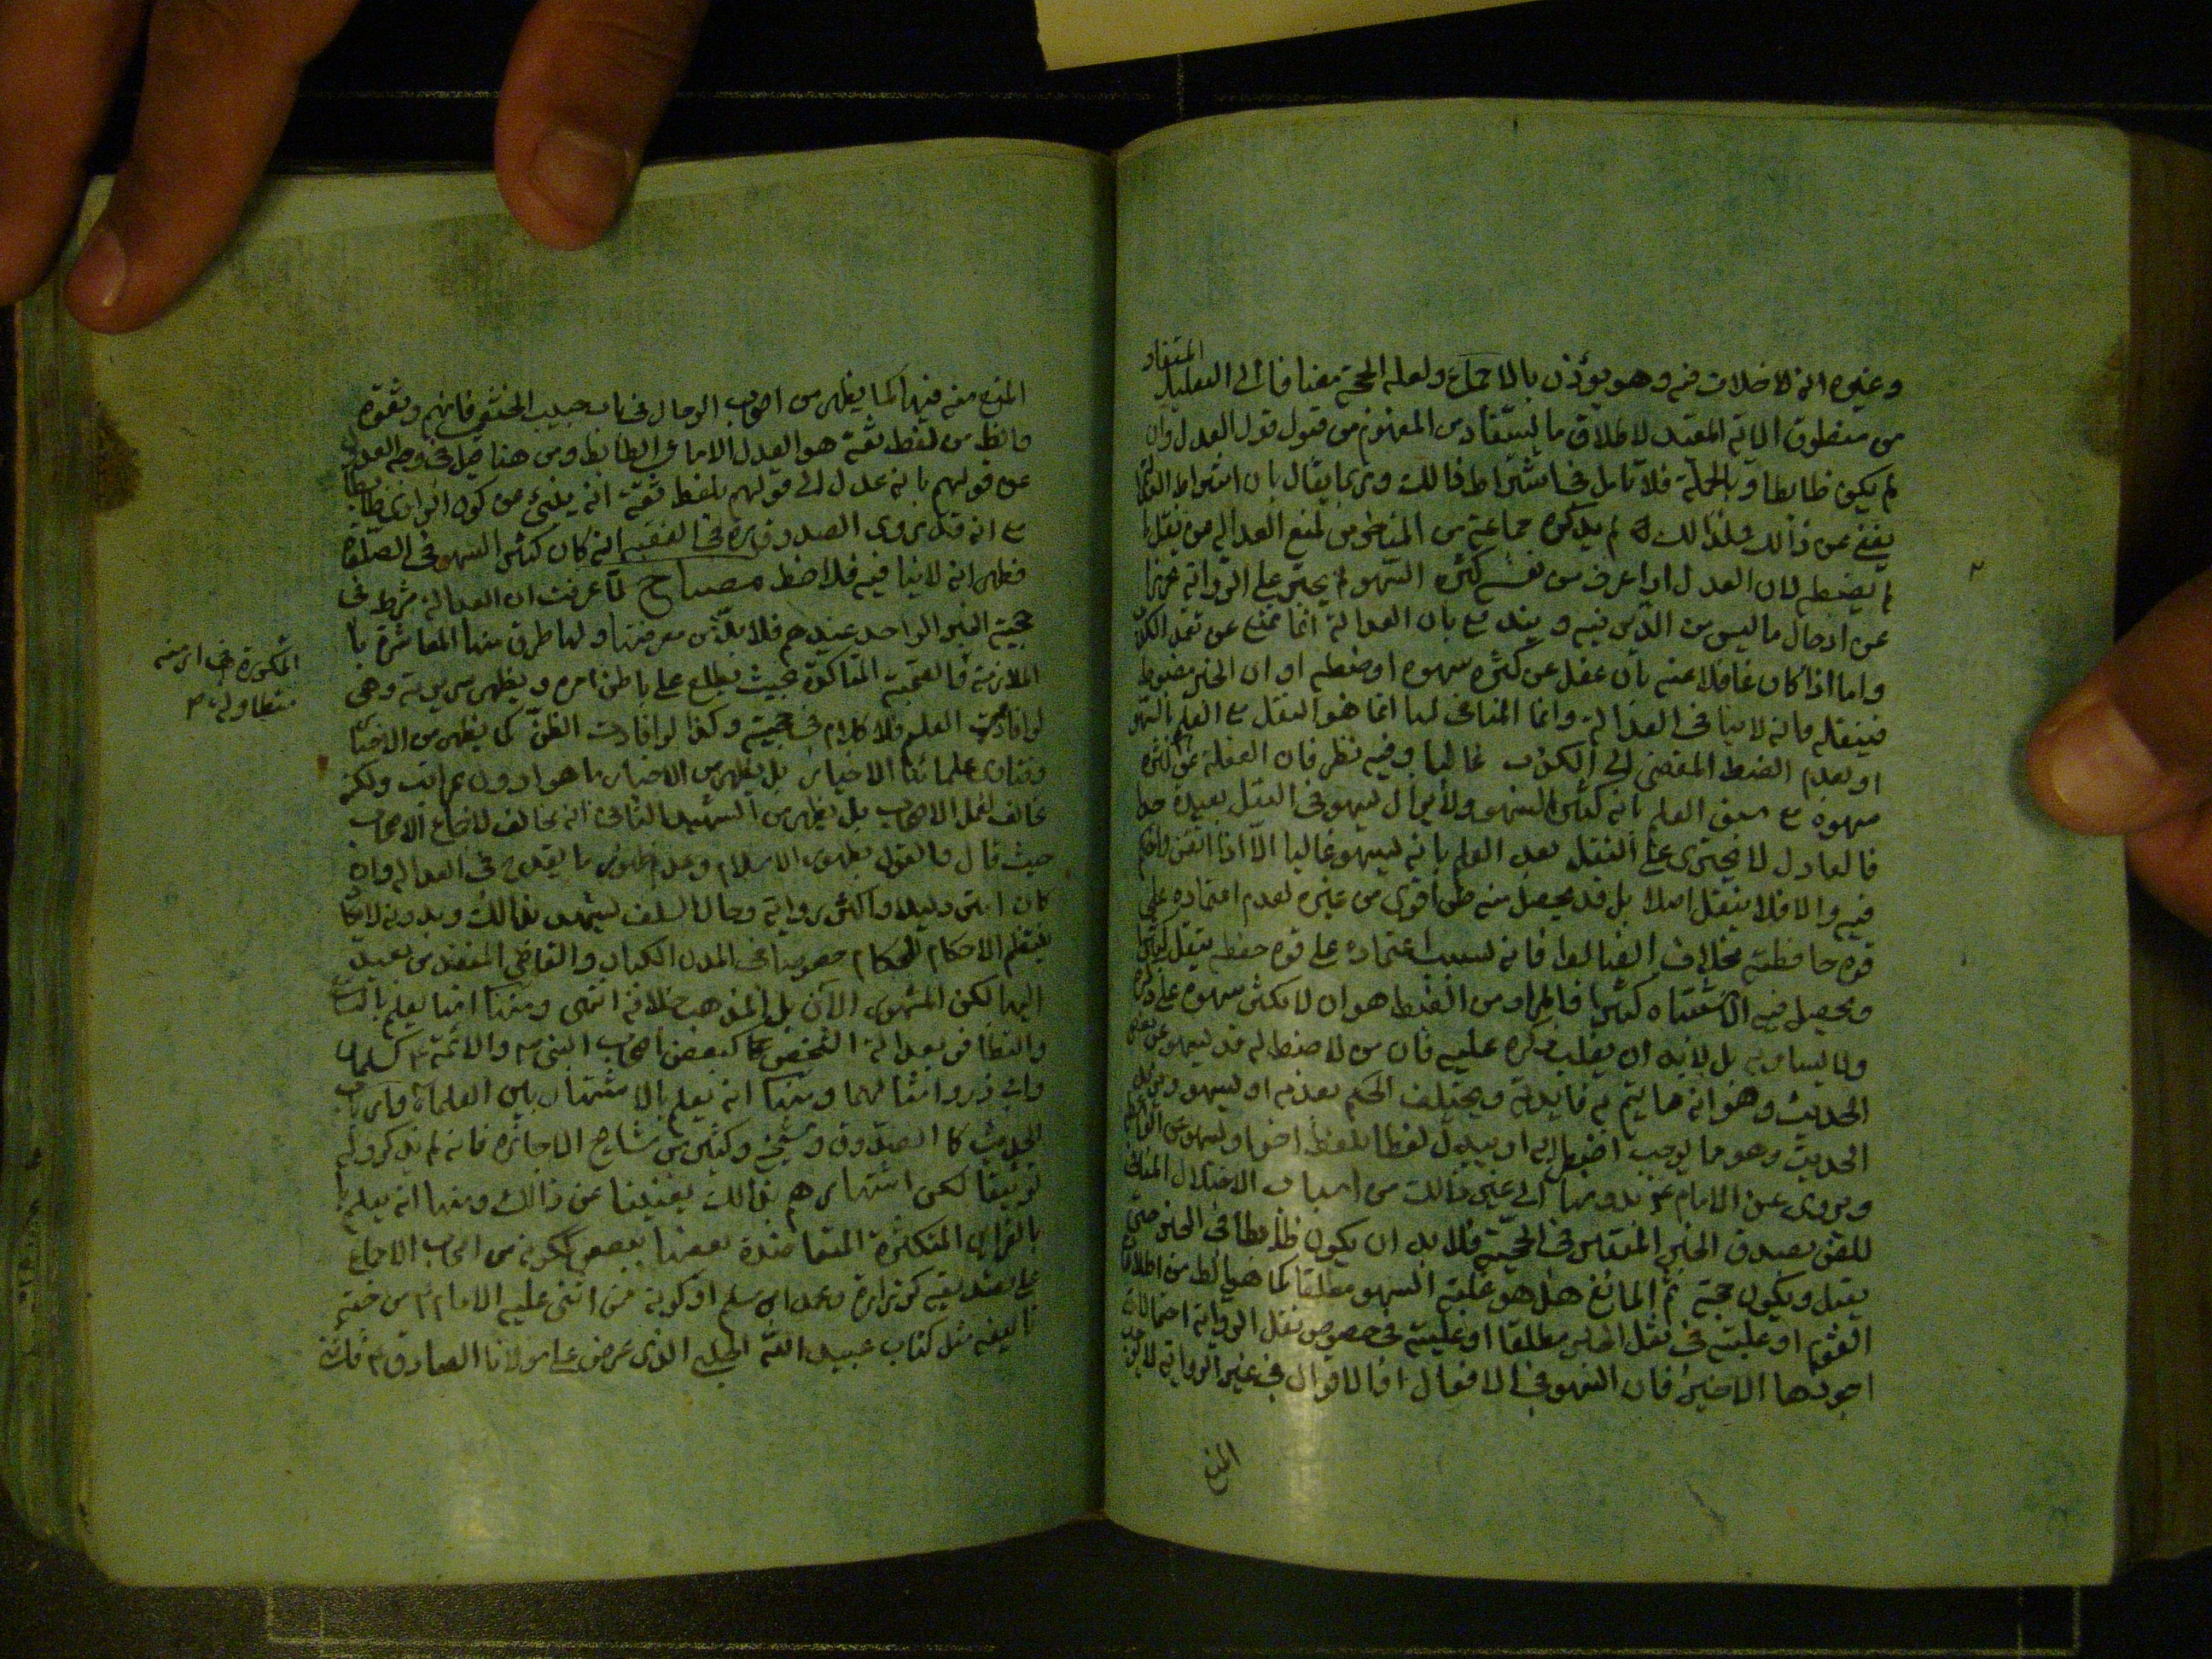 وغيره انه لا خلاف فيه وهو يؤذن بالاجماع ولعله الحجة مضافا الى التعليل المستفاد
من منطوق الاية المقيد لاطلاق ما يستفاد من المفهوم من قبول قول العدل وان
لم يكن ضابطا وبالجملة فلا تامل في اشتراط ذالك وربما يقال بان اشتراط العدالة
يغني عن ذالك ولذالك لم يذكره جماعة من المتاخرين لمنع العدالة من نقل ما
لم يضبطه لان العدل اذا عرف من نفسه كثرة السهو لم يجتر على الرواية تحرزا
عن ادخال ما ليس من الدين فيه ويندفع بان العدالة انما تمنع عن تعمد الكذب
واما اذا كان غافلا عنه بان غفل عن كثرة سهوه او ضبطه او ان الخبر مضبوط
فينقله فانه لا ينافي العدالة وانما المنافي لها انما هو النقل مع العلم بالسهو
او بعدم الضبط المفضي الى الكذب غالبا وفيه نظر فان الغفلة عن كثرة
سهوه مع سبق العلم بانه كثير السهو ولا يزال يسهو في النقل بعيدة جدا
فالعادل لا يجتري على النقل بعد العلم بانه يسهو غالبا الا اذا اتقن واحكم
فيه والا فلا ينقل اصلا بل قد يحصل منه ظن اقوى من غيره لعدم اعتماده على
قوة حافظته بخلاف الضابط فانه بسبب اعتماده على قوة حفظه ينقل كثيرا
ويحصل فيه الاشتباه كثيرا فالمراد من الضبط هو ان لا يكثر سهوه على ذكره
ولا يساويه بل لابد ان يغلب ذكره عليه فان من لا ضبط له قد يسهو عن بعض
الحديث وهو انه مما يتم به فايدته ويختلف الحكم بعدمه او يسهو ويزيد في
الحديث وهو مما يوجب اضطرابه او يبدل لفظا بلفظ اخر او يسهو عن الواسطة
ويروى عن الامام ع بدونها الى غير ذالك من اسباب الاختلال المنافي
للظن بصدق الخبر المعتبر في الحجية فلا بد ان يكون ضابطا في الخبر حتى
يقبل ويكون حجة ثم المانع هل هو غلبة السهو مطلقا كما هو الظ من اطلاق
القوم او غلبته في نقل الخبر مطلقا او غلبته في خصوص نقل الرواية احتمالات
اجودها الاخير فان السهو في الافعال او الاقوال في غير الرواية لا يوجب
المنع
المنع منه فيها كما يظهر من اصحاب الرجال في باب حبيب الخثعمي فانهم وثقوه
والظ من لفظ ثقة هو العدل الامامي الضابط ومن هنا قيل في وجه العدول
عن قولهم بانه عدل الى قولهم بلفظ ثقة انه ينبئ عن كون الراوي ضابطا
مع انه قد روى الصدوق ره في الفقيه انه كان كثير السهو في الصلوة
فظهر انه لا ينافيه فلاحظ مصباح لما عرفت ان العدالة شرط في
حجية الخبر الواحد عندهم فلا بد من معرفتها ولها طرق منها المعاشرة با
الملازمة والصحبة المتاكدة بحيث يطلع على باطن امره ويظهر سريرته وهي
لو افادت العلم فلا كلام في حجيته وكذا لو افادت الظن كما يظهر من الاخبار
وفتاوى علمائنا الاخيار بل يظهر من الاخبار ما هو ادون مراتب ولكنه
مخالف لعمل الاصحاب بل يظهر من الشهيد الثاني انه مخالف لاجماع الاصحاب
حيث قال والقول بظهور الاسلام وعدم ظهور ما يقدح في العدالة وان
كان امتن دليلا واكثر رواية وحال السلف يشهد بذالك وبدونه لا يكاد
ينتظم الاحكام للحكام خصوصا في المدن الكبار والقاضي المنفذ من بعيد
اليها لكن المشهور الآن بل المذهب خلافه انتهى ومنها انها يعلم بالتسامع
والتظافر بعدالة الشخص كما كبعض اصحاب النبي ص والائمة ع كسلمان
وابي ذر وامثالهما ومنها انه يعلم بالاشتهار بين العلماء وارباب
الحديث كالصدوق وشيخه وكثير من مشايخ الاجازة فانه لم يذكروا له
توثيقا لكن اشتهارهم بذالك يغنينا عن ذالك ومنها انه يعلم با
بالقراين المتكثرة المتعاضدة بعضها ببعض ككونه من اصحاب الاجماع
على تصديقه كزرارة ومحمد ابن مسلم او كونه ممن اثنى عليه الامام ع من جهة
تاليفه مثل كتاب عبيد الله الحلبي الذي عرض على مولانا الصادق ع
المتكررة في ازمنة
متطاولة